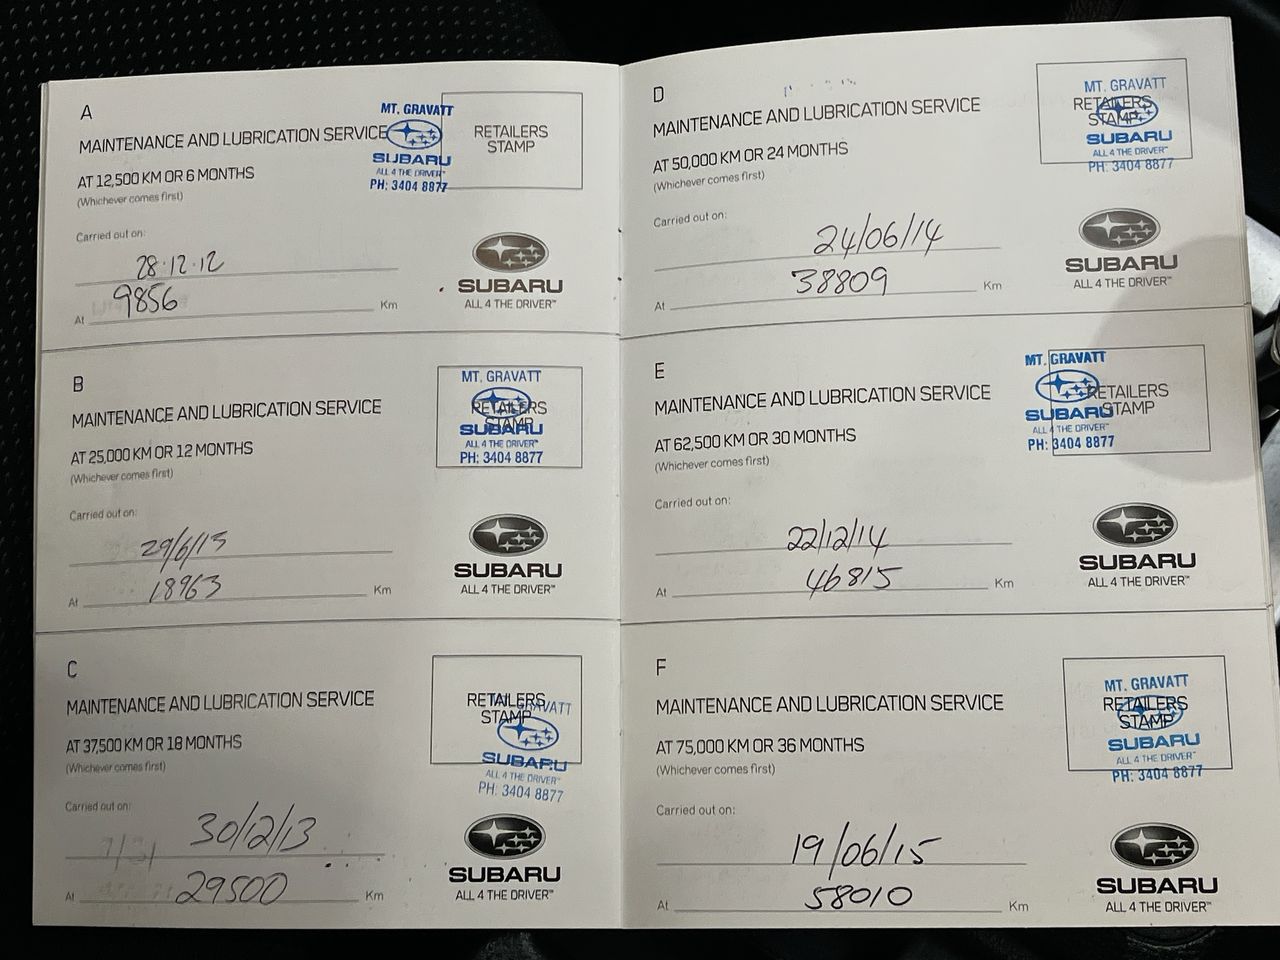 A
MAINTENANCE AND LUBRICATION SERVICE
MT. GRAVATT
SUBARU
ALL 4 THE DRIVER™
PH: 3404 8877
RETAILERS
STAMP
AT 12,500 KM OR 6 MONTHS
(Whichever comes first)
Carried out on:
28·12·12
At 9856 Km
SUBARU
ALL 4 THE DRIVER™
B
MAINTENANCE AND LUBRICATION SERVICE
MT. GRAVATT
RETAILERS
STAMP
SUBARU
ALL 4 THE DRIVER™
PH: 3404 8877
AT 25,000 KM OR 12 MONTHS
(Whichever comes first)
Carried out on:
29/6/13
At 18963 Km
SUBARU
ALL 4 THE DRIVER™
C
MAINTENANCE AND LUBRICATION SERVICE
RETAILERS
STAMP
GRAVATT
SUBARU
ALL 4 THE DRIVER™
PH: 3404 8877
AT 37,500 KM OR 18 MONTHS
(Whichever comes first)
Carried out on:
30/12/13
At 29500 Km
SUBARU
ALL 4 THE DRIVER™
D
MAINTENANCE AND LUBRICATION SERVICE
MT. GRAVATT
RETAILERS
STAMP
SUBARU
ALL 4 THE DRIVER™
PH: 3404 8877
AT 50,000 KM OR 24 MONTHS
(Whichever comes first)
Carried out on:
24/06/14
At 38809 Km
SUBARU
ALL 4 THE DRIVER™
E
MAINTENANCE AND LUBRICATION SERVICE
MT. GRAVATT
SUBARU
ALL 4 THE DRIVER™
PH: 3404 8877
RETAILERS
STAMP
AT 62,500 KM OR 30 MONTHS
(Whichever comes first)
Carried out on:
22/12/14
At 46815 Km
SUBARU
ALL 4 THE DRIVER™
F
MAINTENANCE AND LUBRICATION SERVICE
MT. GRAVATT
RETAILERS
STAMP
SUBARU
ALL 4 THE DRIVER™
PH: 3404 8877
AT 75,000 KM OR 36 MONTHS
(Whichever comes first)
Carried out on:
19/06/15
At 58010 Km
SUBARU
ALL 4 THE DRIVER™